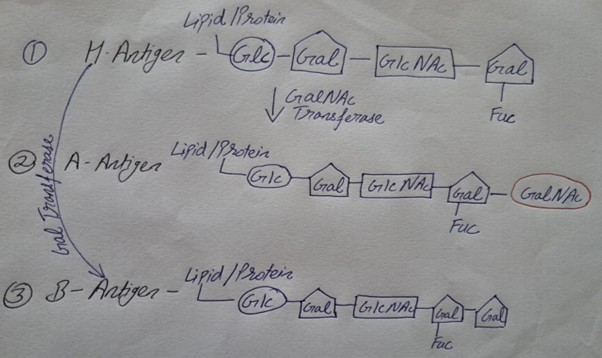 Lipid/Protein
① H-Antigen - Glc - Gal - GlcNAc - Gal
Fuc
GalNAc
Transferase
Gal Transferase
② A-Antigen Lipid/Protein Glc - Gal - GlcNAc - Gal - GalNAc
Fuc
③ B-Antigen - Lipid/Protein Glc - Gal - GlcNAc - Gal - Gal
Fuc